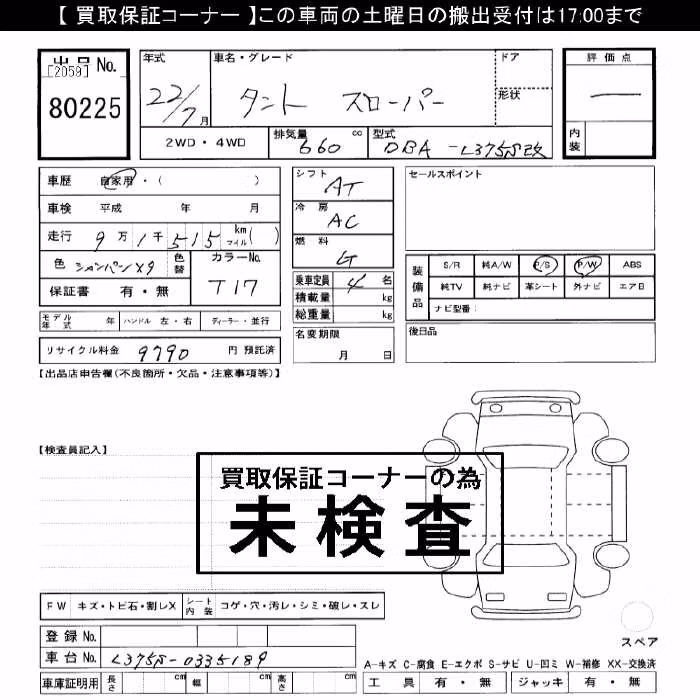 【 買取保証コーナー 】この車両の土曜日の搬出受付は17:00まで
出品No.
[2059]
80225
年式
22/7月
車名・グレード
タント スローパー
ドア
形状
評価点
―
内装
2WD・4WD
排気量 660 cc
型式 DBA-L375S改
車歴 自家用・( )
車検 平成 年 月
走行 9万1千515 km マイル( )
色 シャンパンX9 色替
カラーNo. T17
保証書 有・無
モデル年式 年 ハンドル 左・右 ディーラー・並行
リサイクル料金 9790 円 預託済
シフト AT
冷房 AC
燃料 G
乗車定員 4 名
積載量 kg
総重量 kg
名変期限
月 日
セールスポイント
装備品
S/R 純A/W P/S P/W ABS
純TV 純ナビ 革シート 外ナビ エアB
ナビ型番:
後日品
【出品店申告欄(不良箇所・欠品・注意事項等)】
【検査員記入】
買取保証コーナーの為
未検査
FW キズ・トビ石・割レX シート内装 コゲ・穴・汚レ・シミ・破レ・スレ
登録No.
車台No. L375S-0335189
車庫証明用 長さ cm 幅 cm 高さ cm
スペア
A-キズ C-腐食 E-エクボ S-サビ U-凹ミ W-補修 XX-交換済
工具 有・無 ジャッキ 有・無